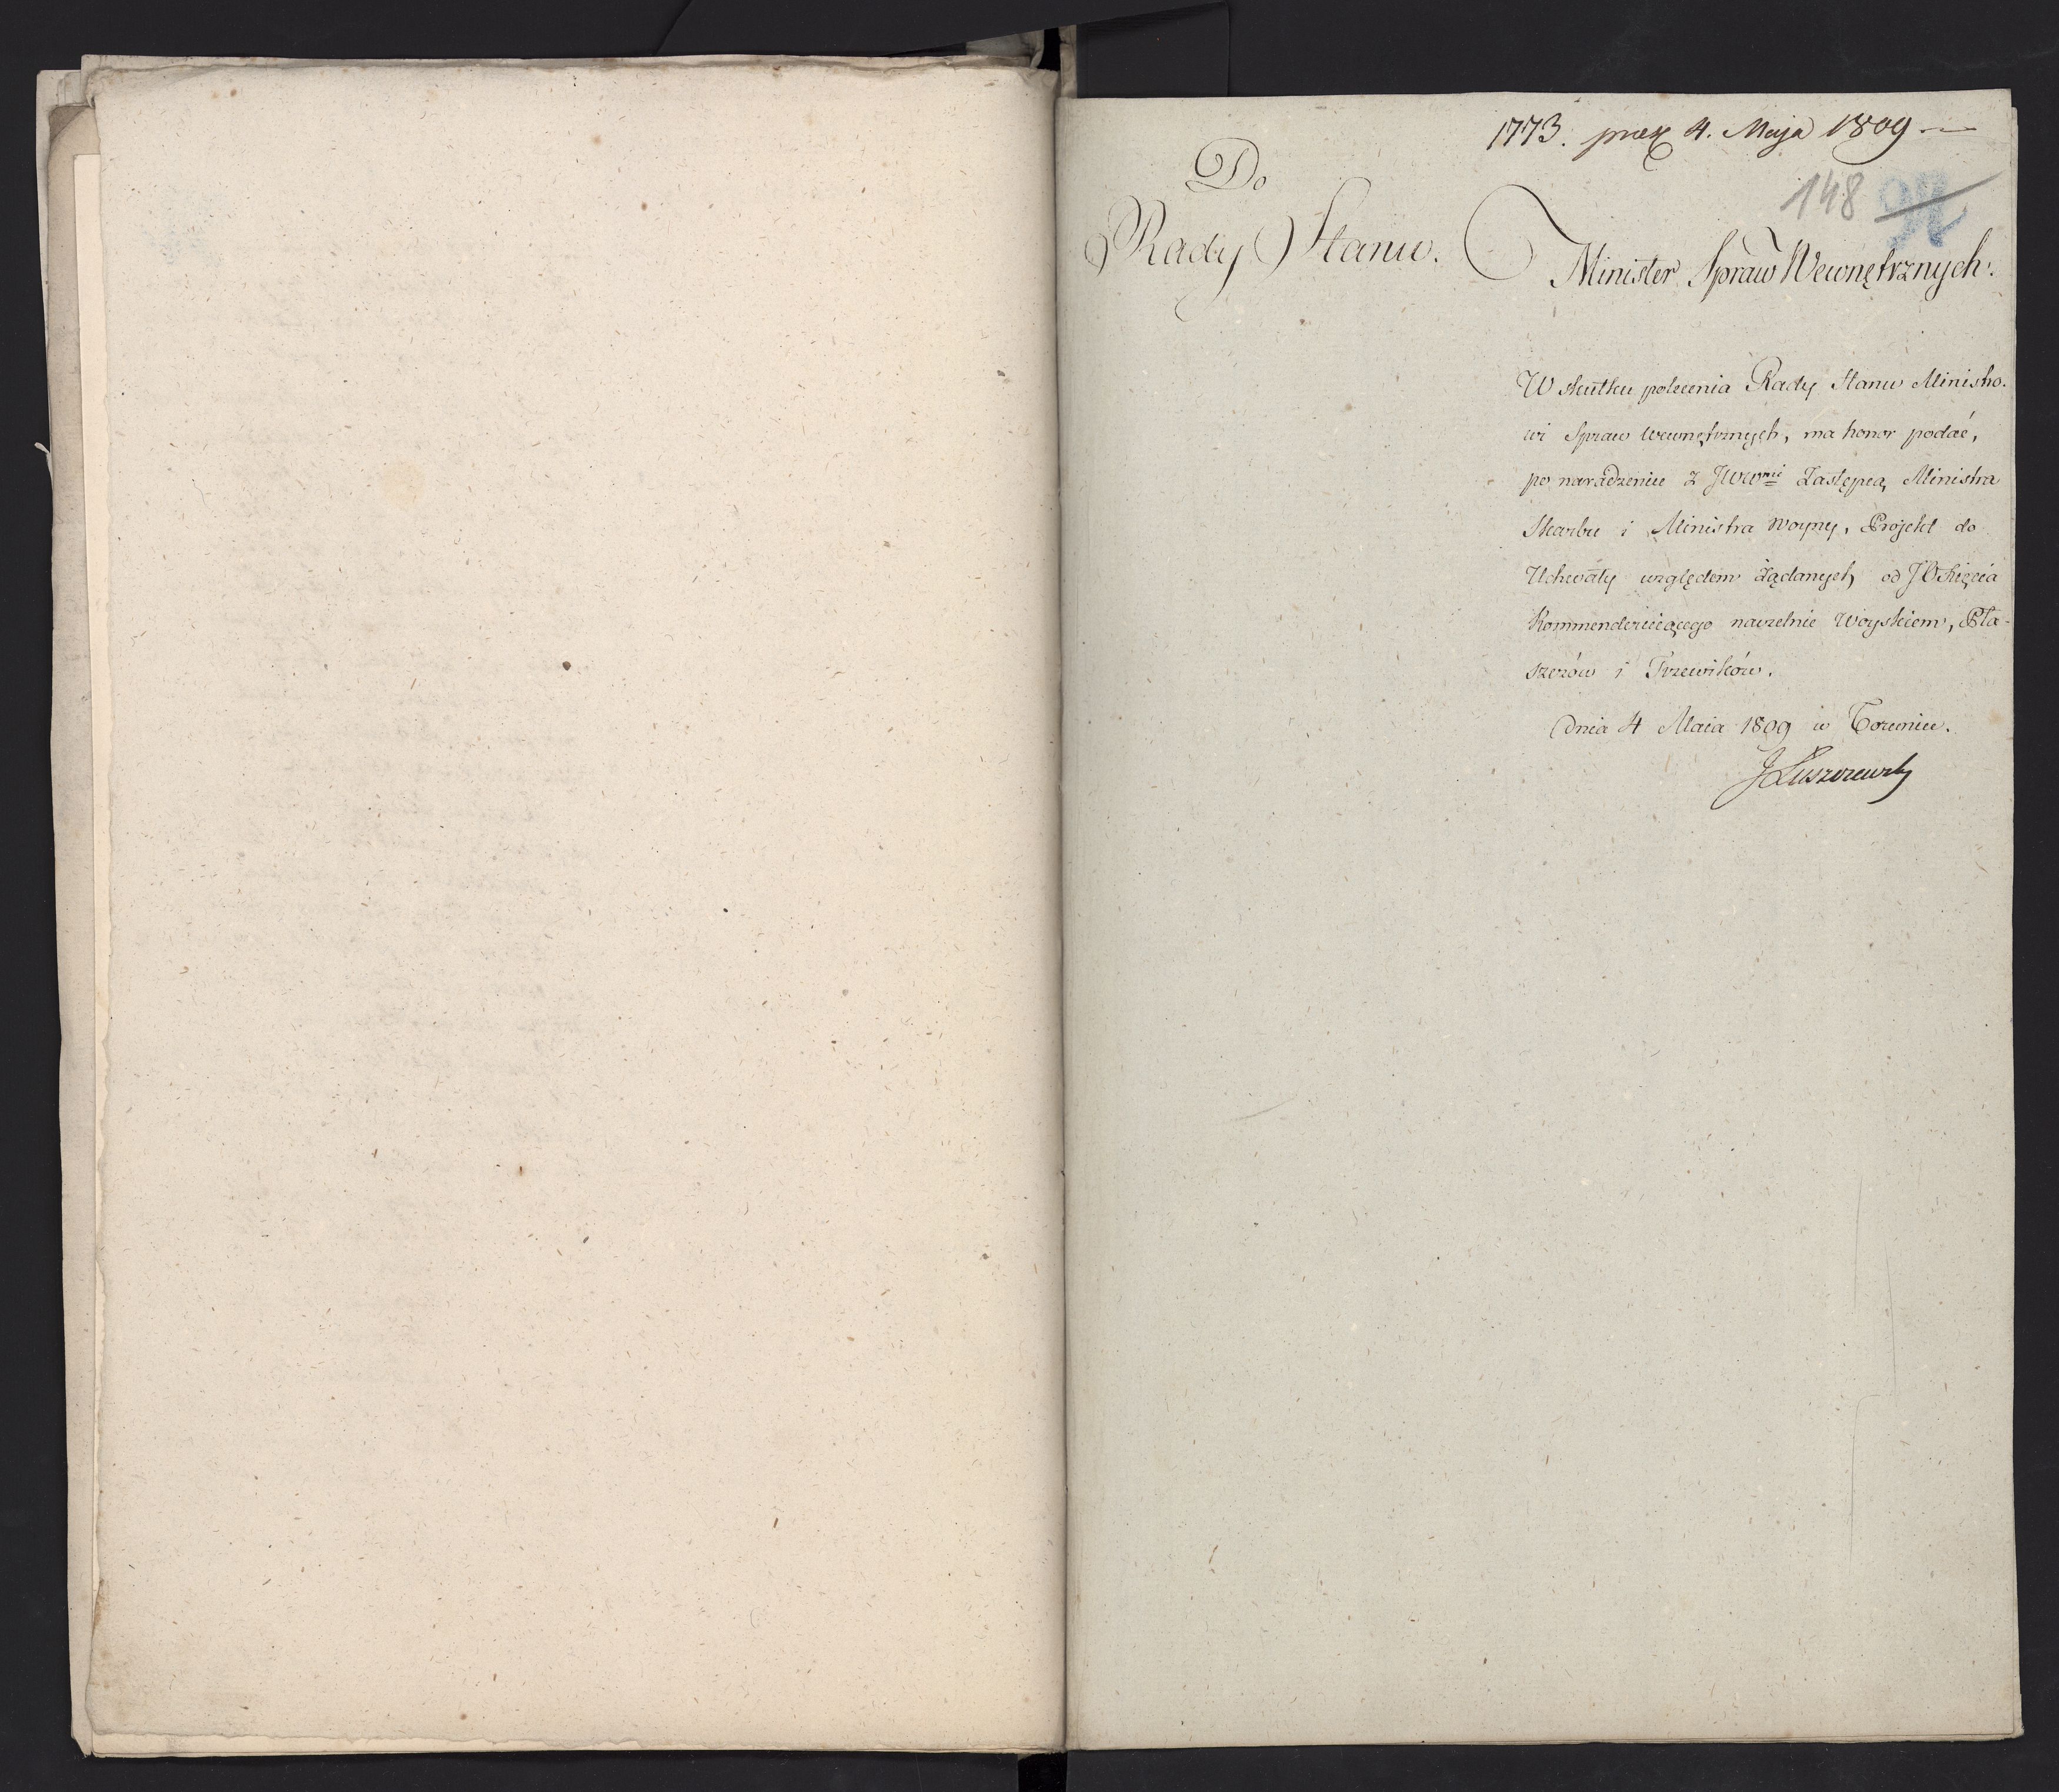 1773. prez 4. Maja 1809
148
Do
Rady Stanu.
Minister Spraw Wewnętrznych.
W skutku polecenia Rady Stanu Ministro-
wi Spraw wewnętrznych, ma honor podać,
po naradzeniu z JWWmi Zastępcą Ministra
Skarbu i Ministra Woyny, Projekt do
Uchwały względem żądanych od JO Xięcia
Kommenderuiącego naczelnie Woyskiem, Pła-
szczów i Trzewików.
Dnia 4 Maia 1809 w Toruniu.
JŁuszczewsky